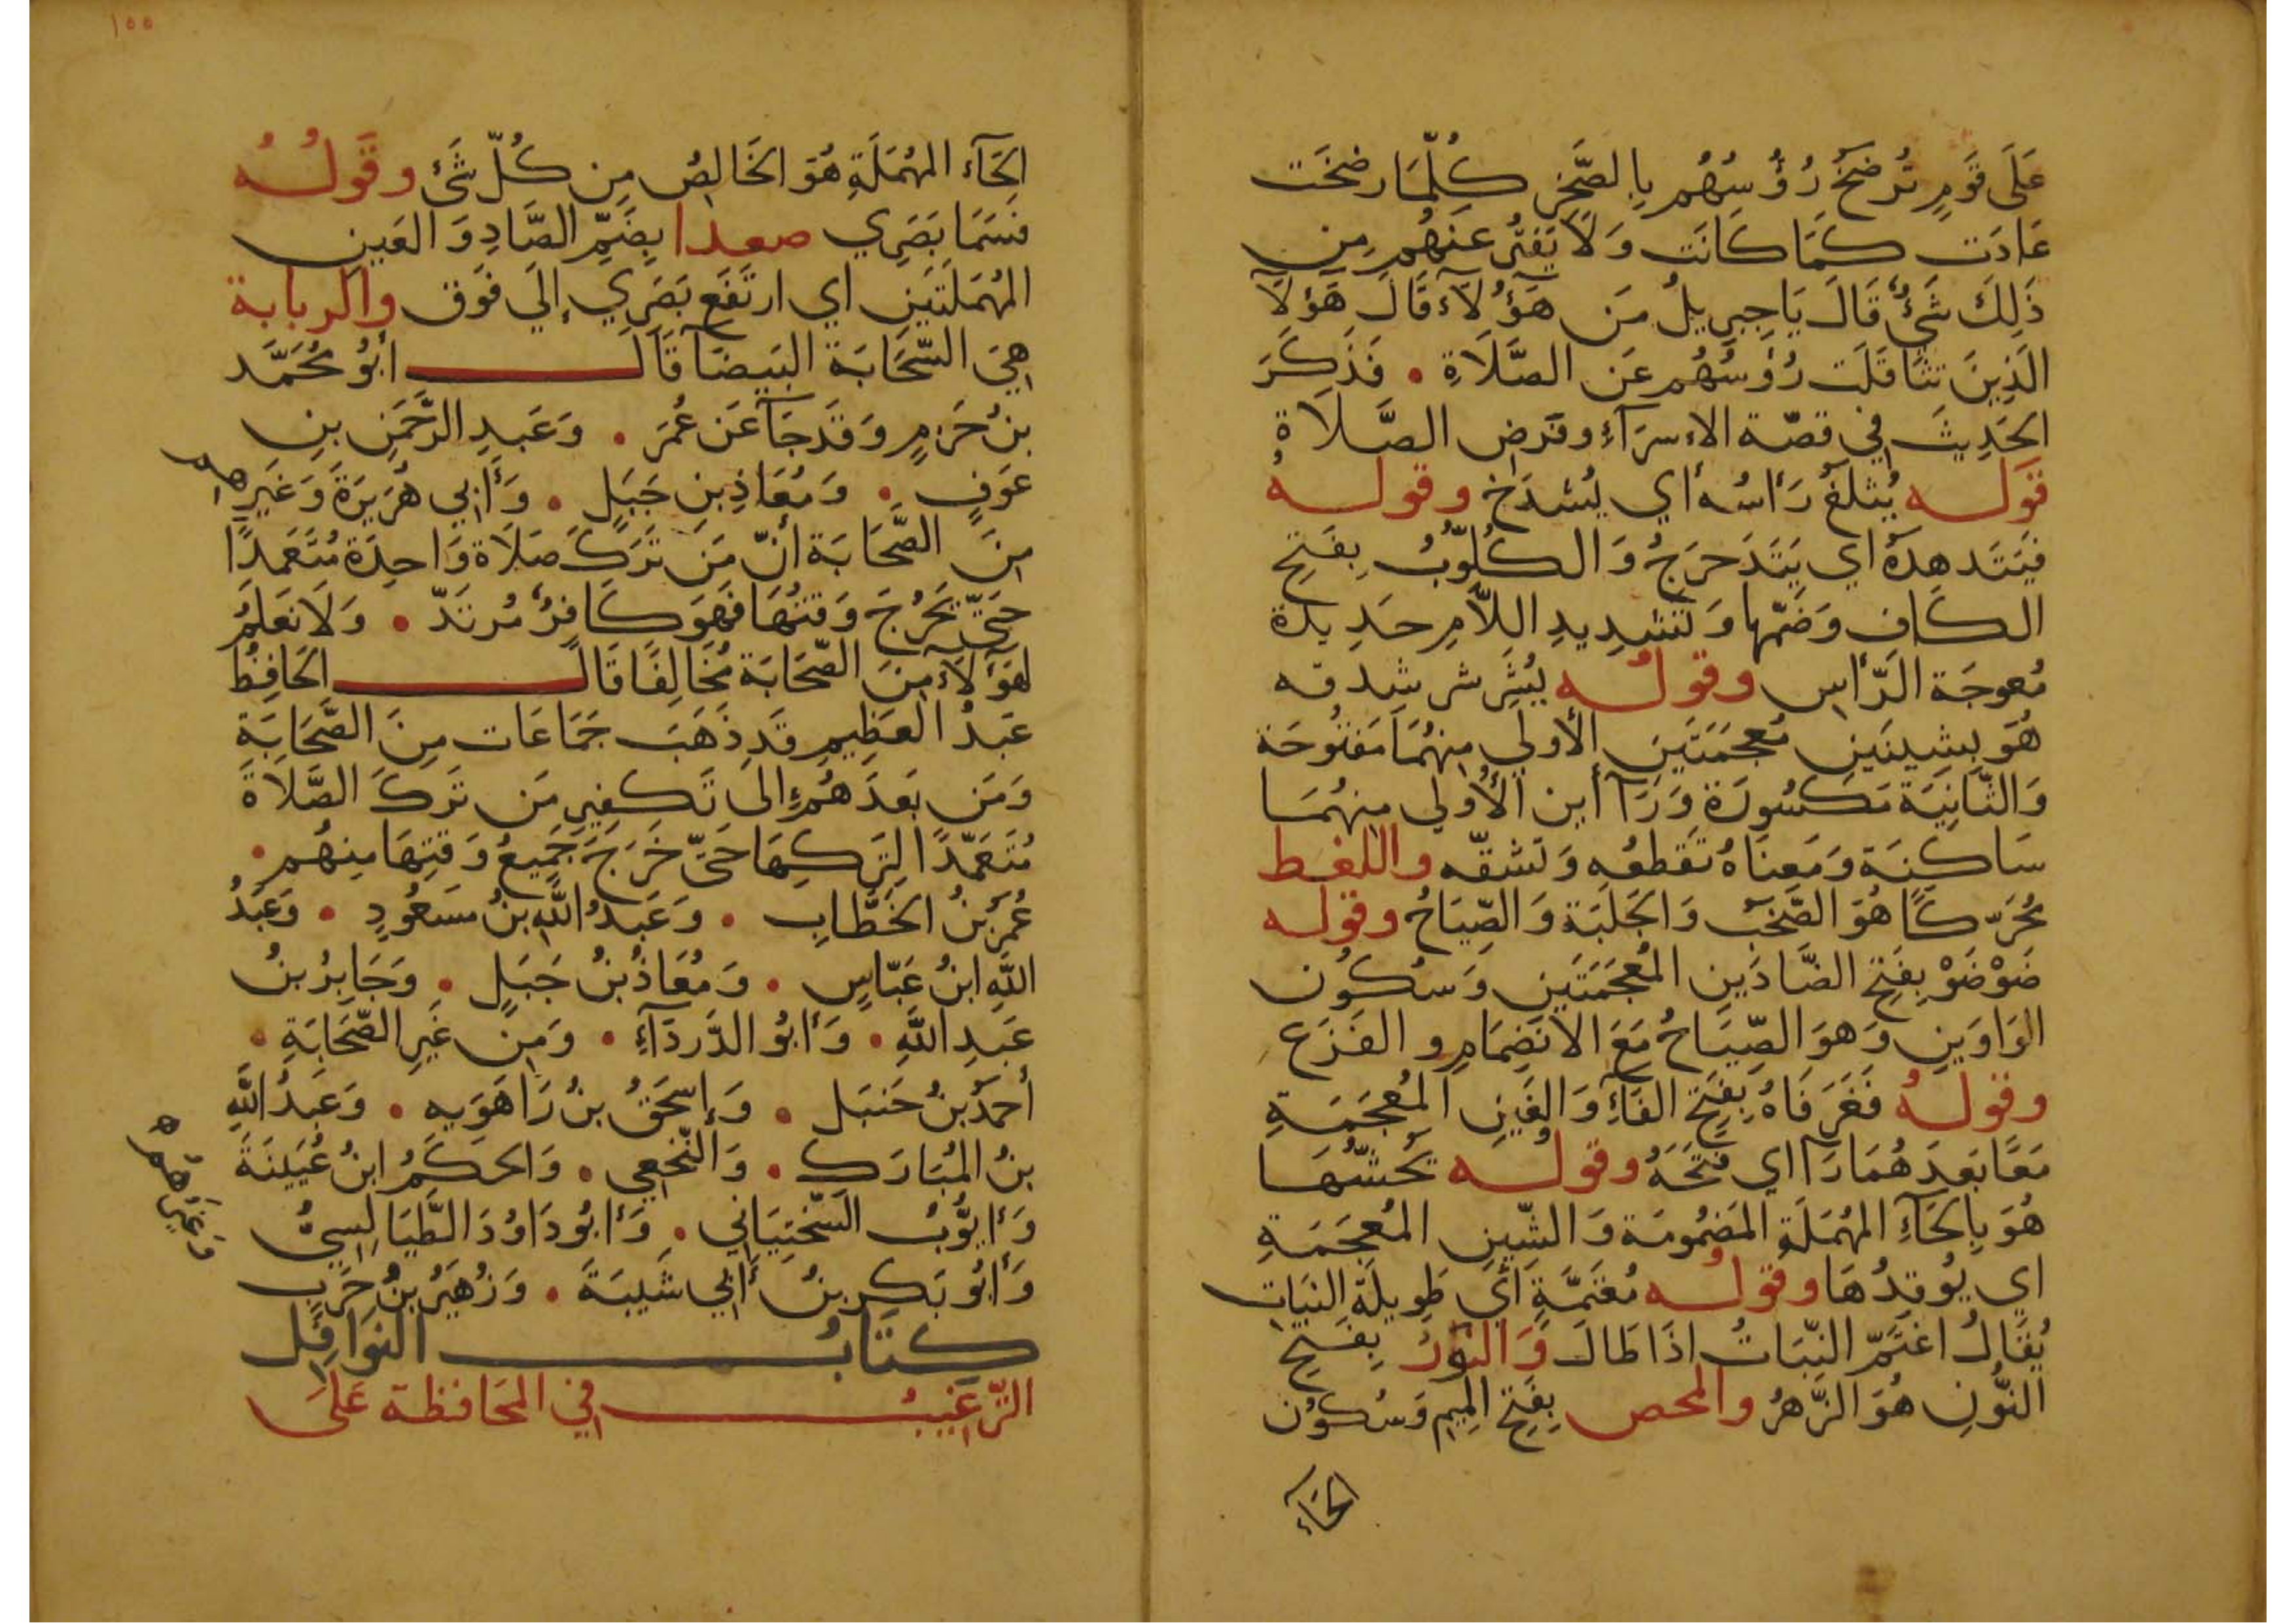 عَلَى قَوْمٍ تُرْضَخُ رُؤُسُهُم بِالصَّخْرِ كُلَّمَا رضخَت
عَادَت كَمَا كَانَت وَلَا يَفْتُرُ عَنْهُم مِن
ذَلِكَ شَيْءٌ قَالَ يَا جِبْرِيلُ مَن هَؤُلَآءِ قَالَ هَؤُلَآ
الَّذِينَ تتثَاقَلَت رُؤُسُهُم عَن الصَّلَاةِ • فَذَكَرَ
الحَدِيثَ فِي قصّة الاسرَآءِ وفَرض الصَّلَاة
قَولـه يُثلَغُ رَأسُه أي يُشدَخ وقولـه
فيَتَدهدَهُ اي يَتَدَحرَجُ وَالكَلُّوبُ بِفَتحِ
الكَافِ وَضَمّها وَتَشدِيدِ اللَّامِ حَدِيدَة
مُعوجَة الرَّأسِ وقولُـه يُشَرشر شدقه
هُوَ بِشِينَينِ مُعجَمَتَينِ الأولي مِنهُمَا مَفتُوحَة
وَالثَّانِيَة مَكسُورَة وَرَآأَين الأُولي منهُمَا
سَاكِنَة وَمَعنَاهُ تقَطعُه وَتشقّه واللغط
مُحَرّكًا هُوَ الصَّخَبُ وَالجَلَبَة وَالصِّيَاحُ وقوله
ضَوْضَوْ بِفَتح الضَّادَينِ المُعجَمَتَينِ وَسكُون
الوَاوَينِ وَهوَ الصِّيَاحُ مَعَ الانضِمَامِ والفَزَع
وقولُـهُ فَغَرَ فَاهُ بِفَتحِ الفَآءِ وَالغَينِ المُعجَمَةِ
مَعًا بَعدَهُمَا رَآ اي فتحَهُ وقولُـه يَحُشّهَا
هُوَ بِالحَآءِ المُهمَلَةِ المَضمُومَة وَالشِّينِ المُعجَمَةِ
اي يُوقدُهَا وقولُـه مُعْتَمَّةٍ أَي طَوِيلَة النّبَاتِ
يُقَالُ اعتَمَّ النّبَاتُ اذَا طَالَ وَالنَّورُ بِفَتحِ
النُّونِ هُوَ الزَّهرُ والمحض بِفَتح المِيم وَسُكُون
الحَآءِ
١٥٥
الحَآءِ المُهمَلَةِ هُوَ الخَالِصُ مِن كُلّ شَيْ وقَولُـهُ
فسَمَا بَصَرِي صعدا بِضَمِّ الصَّادِ وَالعَينِ
المُهمَلَتَينِ اي ارتَفَع بَصَرِي إِلَي فَوق والربابة
هِيَ السَّحَابَة البَيضَا قَالَ ابُو مُحَمَّد
بنُ حَزمٍ وَقَد جَآ عَن عُمَرَ • وَعَبدِ الرَّحمَنِ بنِ
عَوفٍ • وَمُعَاذِ بنِ جَبَلٍ • وَأَبِي هُرَيرَةَ وَغَيرِهِم
مِنَ الصَّحَابَة أَنّ مَن تَرَكَ صَلَاة وَاحِدَة مُتَعَمدًا
حَتّي تَخرُجَ وَقتُهَا فَهوَ كَافرٌ مُرتَدّ • وَلَا نَعلَمُ
لهَؤلَآءِ مِنَ الصَّحَابَة مُخَالِفًا قَالَ الحَافِظُ
عَبدُ العَظِيمِ قَد ذَهَبَ جَمَاعَات مِنَ الصَّحَابَة
وَمَن بَعدَهُم إلى تَكفِيرِ مَن تَرَكَ الصَّلَاةَ
مُتَعَمّدًا لِتَركِهَا حَتّي خَرَجَ جَمِيعُ وَقتِهَا مِنهُم •
عُمَرُ بنُ الخَطَّابِ • وَعَبدُ اللَّهِ بنُ مَسعُودٍ • وَعَبدُ
اللَّهِ ابنُ عَبّاسٍ • وَمُعَاذُ بنُ جَبَلٍ • وَجَابِرُ بنُ
عَبدِ اللَّهِ • وَأَبُو الدَّردَآءِ • وَمِن غَيرِ الصَّحَابَةِ •
أَحمَدُ بنُ حَنبَل • وَإسحَقُ بنُ رَاهَوَيه • وَعَبدُ اللَّهِ
بنُ المُبَارَك • وَالنَّخَعِي • وَالحَكَمُ ابنُ عُيَينَةَ
وَأَيُّوبُ السَّختِيَانِي • وَأَبُو دَاوُدَ الطَّيَالِسِيُّ
وَأَبُو بَكرِ بنُ أَبِي شَيبَةَ • وَزُهَيرُ بنُ حَربٍ
وغيرهم
كتَابُ النوَافِل
التّرغيبُ فِي المحَافظة عَلَى